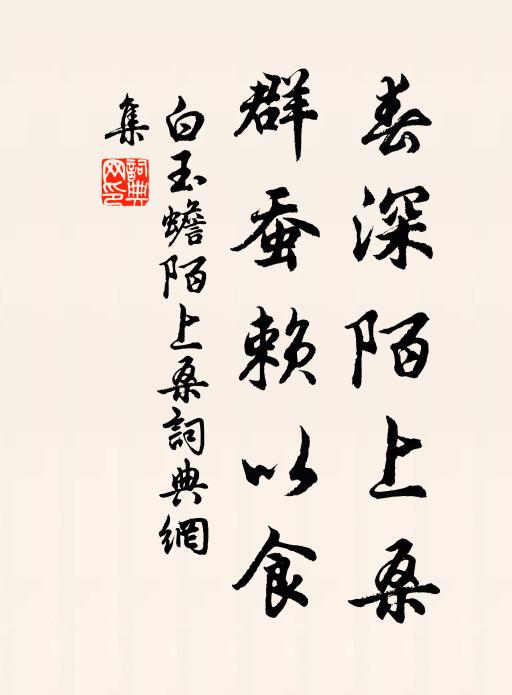 春深陌上桑
群蚕赖以食
白玉蟾陌上桑詞典網
集
詞典網印